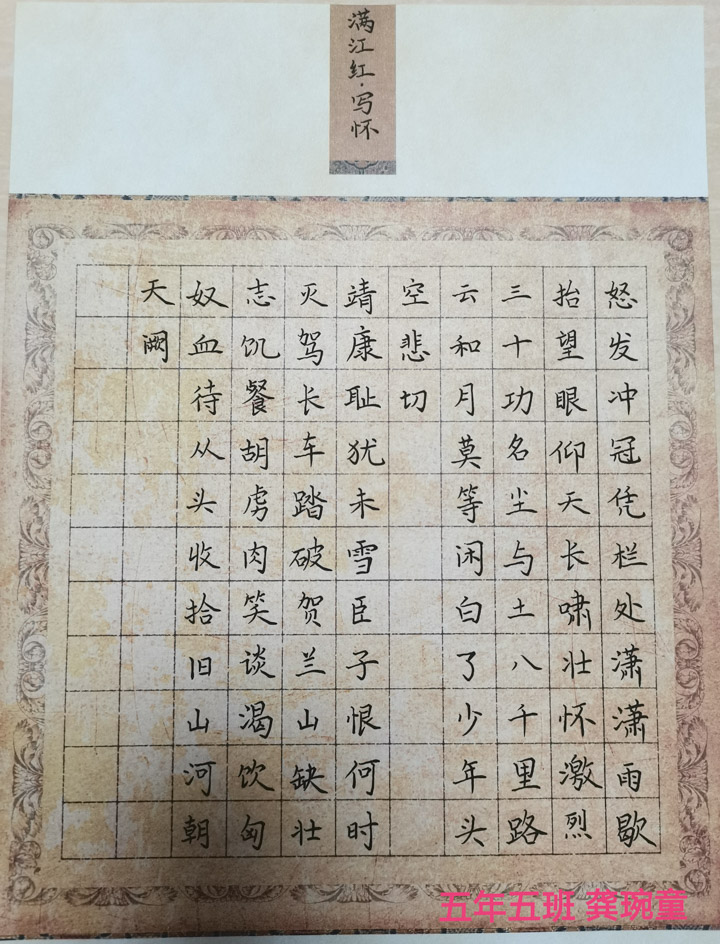 满江红·写怀
怒发冲冠凭栏处潇潇雨歇
抬望眼仰天长啸壮怀激烈
三十功名尘与土八千里路
云和月莫等闲白了少年头
空悲切
靖康耻犹未雪臣子恨何时
灭驾长车踏破贺兰山缺壮
志饥餐胡虏肉笑谈渴饮匈
奴血待从头收拾旧山河朝
天阙
五年五班 龚琬童